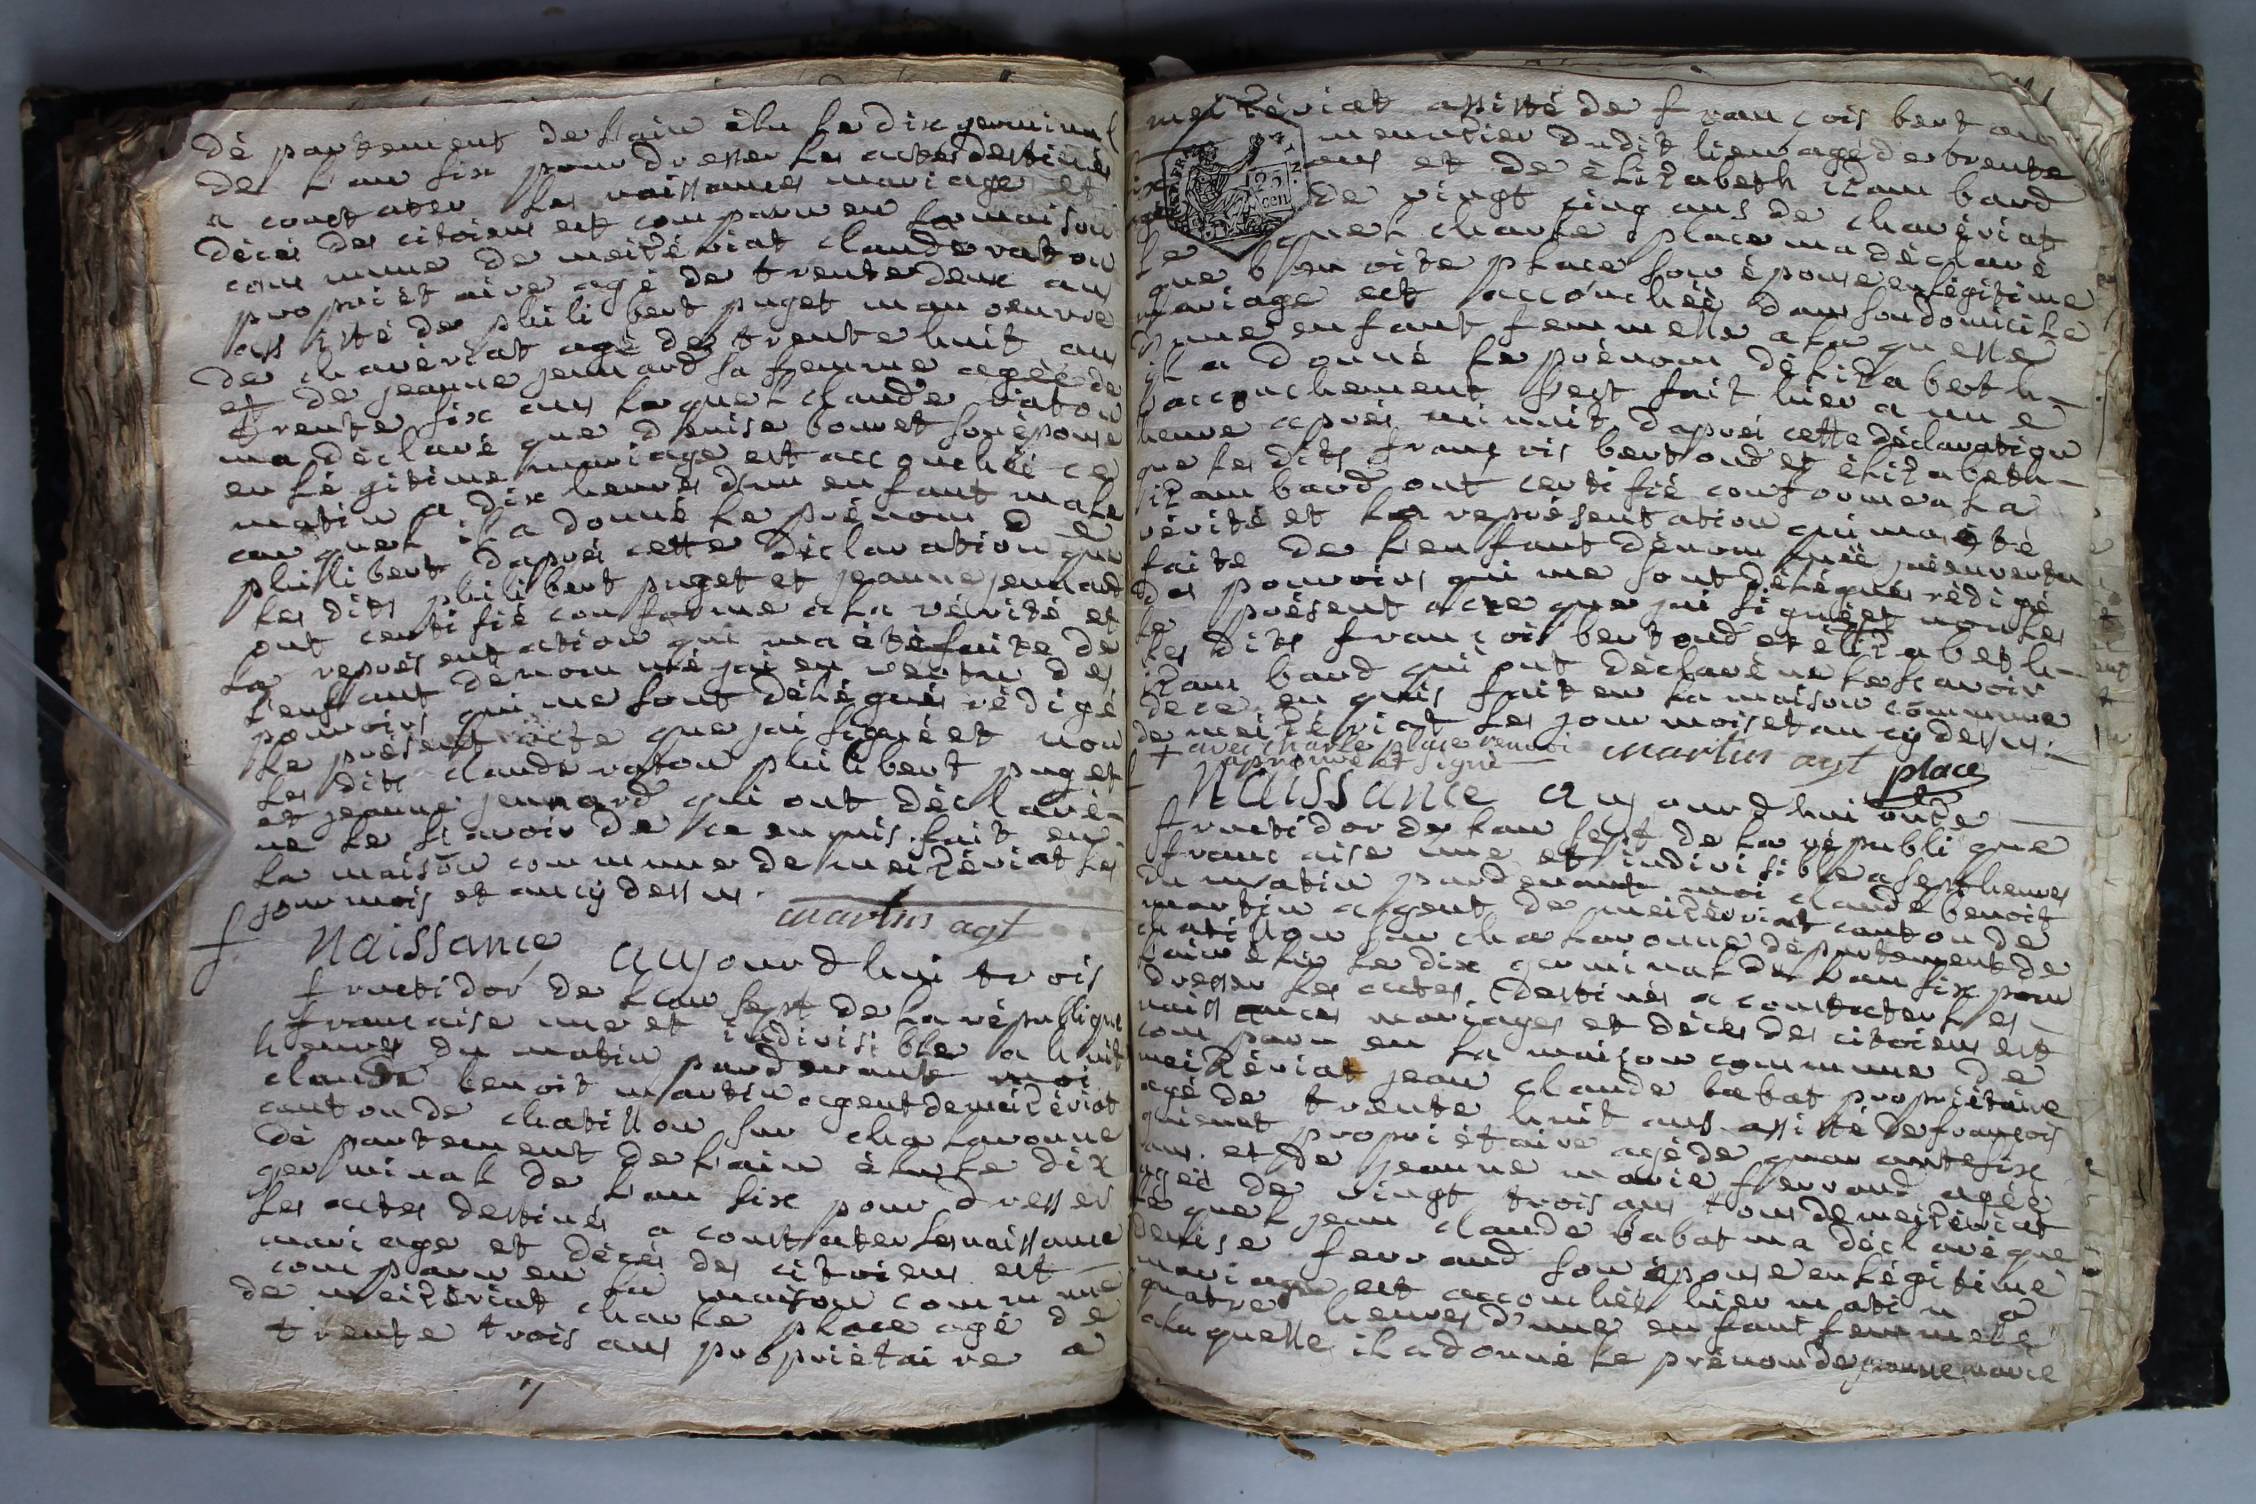 dé partement de lain élu le dix germinal
de lan six pour dresser les actes destinés
a constater les naissances mariages et
décès des citoiens est comparu en la maison
commune de meizériat claude raton
propriétaire agé de trente deux ans
assisté de philibert puget manoeuvre
de chavériat agé de trente huit ans
et de jeanne jennard sa femme agée de
trente six ans lequel claude raton
ma déclaré que denise bouvet son épouse
en légitime mariage est accouchée ce
matin a dix heures dun enfant male
au quel il a donné le prénom de
philibert daprés cette déclaration que
les dits philibert puget et jeanne jennard
ont certifié conforme a la vérité et
la représentation qui ma été faite de
lenfant dénommé jai en vertu des
pouvoirs qui me sont délégués rédigé
le présent acte que jai signé et non
les dits claude raton philibert puget
et jeanne jennard qui ont déclaré
ne le scavoir de ce enquis fait en
la maison commune de meizériat les
jour mois et an cy dessus.
martin agt
f. Naissance aujourdhui trois
fructidor de lan sept de la république
française une et indivisible a huit
heures du matin pardevant moi
claude benoit martin agent de meizériat
canton de chatillon sur chalaronne
dé partement de lain élu le dix
germinal de lan six pour dresser
les actes destinés a constater les naissance
mariage et décès des citoiens est
comparu en la maison commune
de meizériat charle place agé de
trente trois ans propriétaire a
meizériat assisté de françois bertoud
menutier dudit lieu agé de trente
ans et de élizabeth izambard
de vingt cinq ans de chavériat
le quel charle place ma déclaré
que benoite place son épouse en légitime
mariage est accouchée dans son domicile
dune enfant femmelle a la quelle
il a donné le prénom délizabeth
laccouchement sest fait hier a une
heure aprés minuit daprés cette déclaration
que les dits françois bertoud et élizabeth
izambard ont certifié conforme a la
vérité et la représentation qui ma été
faite de lenfant dénommée jai en vertu
des pouvoirs qui me sont délégués rédigé
le présent acte que jai signé et non les
les dits françois bertoud et élizabeth
izambard qui ont déclaré ne le scavoir
de ce enquis fait en la maison commune
de meizériat les jour mois et an cy dessus.
+ avec charle place renvoi martin agt place
aprouvé et signé
Naissance aujourdhui onze
fructidor de lan sept de la république
française une et indivisible a sept heures
du matin pardevant moi claude benoit
martin agent de meizériat canton de
chatillon sur chalaronne département de
lain élu le dix germinal de lan six pour
dresser les actes destinés a constater les
naissances mariages et décès des citoiens est
comparu en la maison commune de
meizériat jean claude babat propriétaire
agé de trente huit ans assisté de françois
propriétaire agé de quarante six
ans et de jeanne marie ferrand agée
de vingt trois ans tous de meizériat
le quel jean claude babat ma déclaré que
denise ferrand son épouse en légitime
mariage est accouchée hier matin a
quatre heures d'une enfant femmele
a la quelle il a donné le prénom de jeanne marie